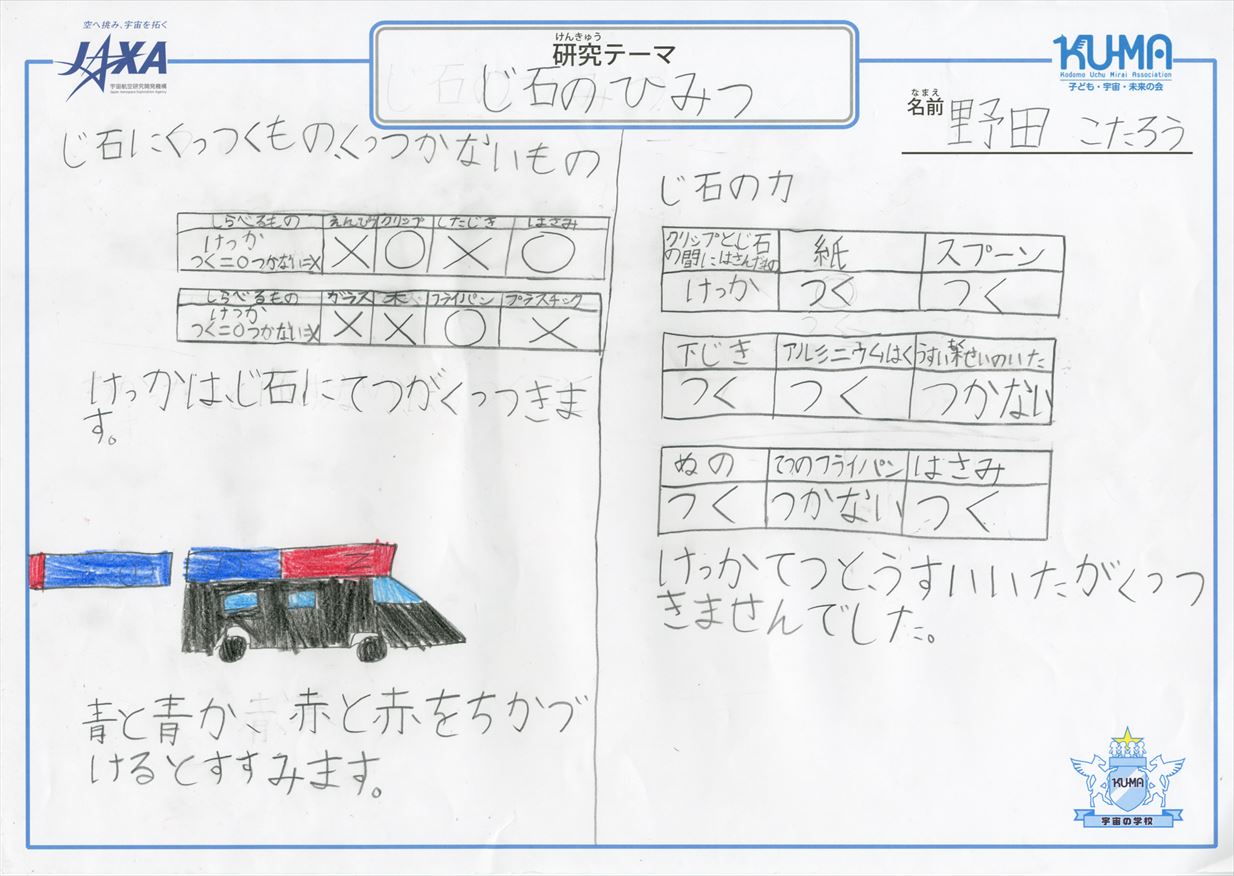 空へ挑み、宇宙を拓く
JAXA
宇宙航空研究開発機構
Japan Aerospace Exploration Agency
けんきゅう
研究テーマ
じ石のひみつ
KU-MA
Kodomo Uchu Mirai Association
子ども・宇宙・未来の会
なまえ
名前 野田 こたろう
じ石にくっつくもの、くっつかないもの
しらべるもの えんぴつ クリップ したじき はさみ
けっか
つく=○つかない=× × ○ × ○
しらべるもの ガラス 木 フライパン プラスチック
けっか
つく=○つかない=× × × ○ ×
けっかは、じ石にてつがくっつきま
す。
青と青か 赤と赤をちかづ
けるとすすみます。
じ石の力
クリップとじ石
の間にはさんだもの 紙 スプーン
けっか つく つく
下じき アルミニウムはく うすい鉄せいのいた
つく つく つかない
ぬの てつのフライパン はさみ
つく つかない つく
けっかてつと、うすいいたがくっつ
きませんでした。
KU-MA
宇宙の学校